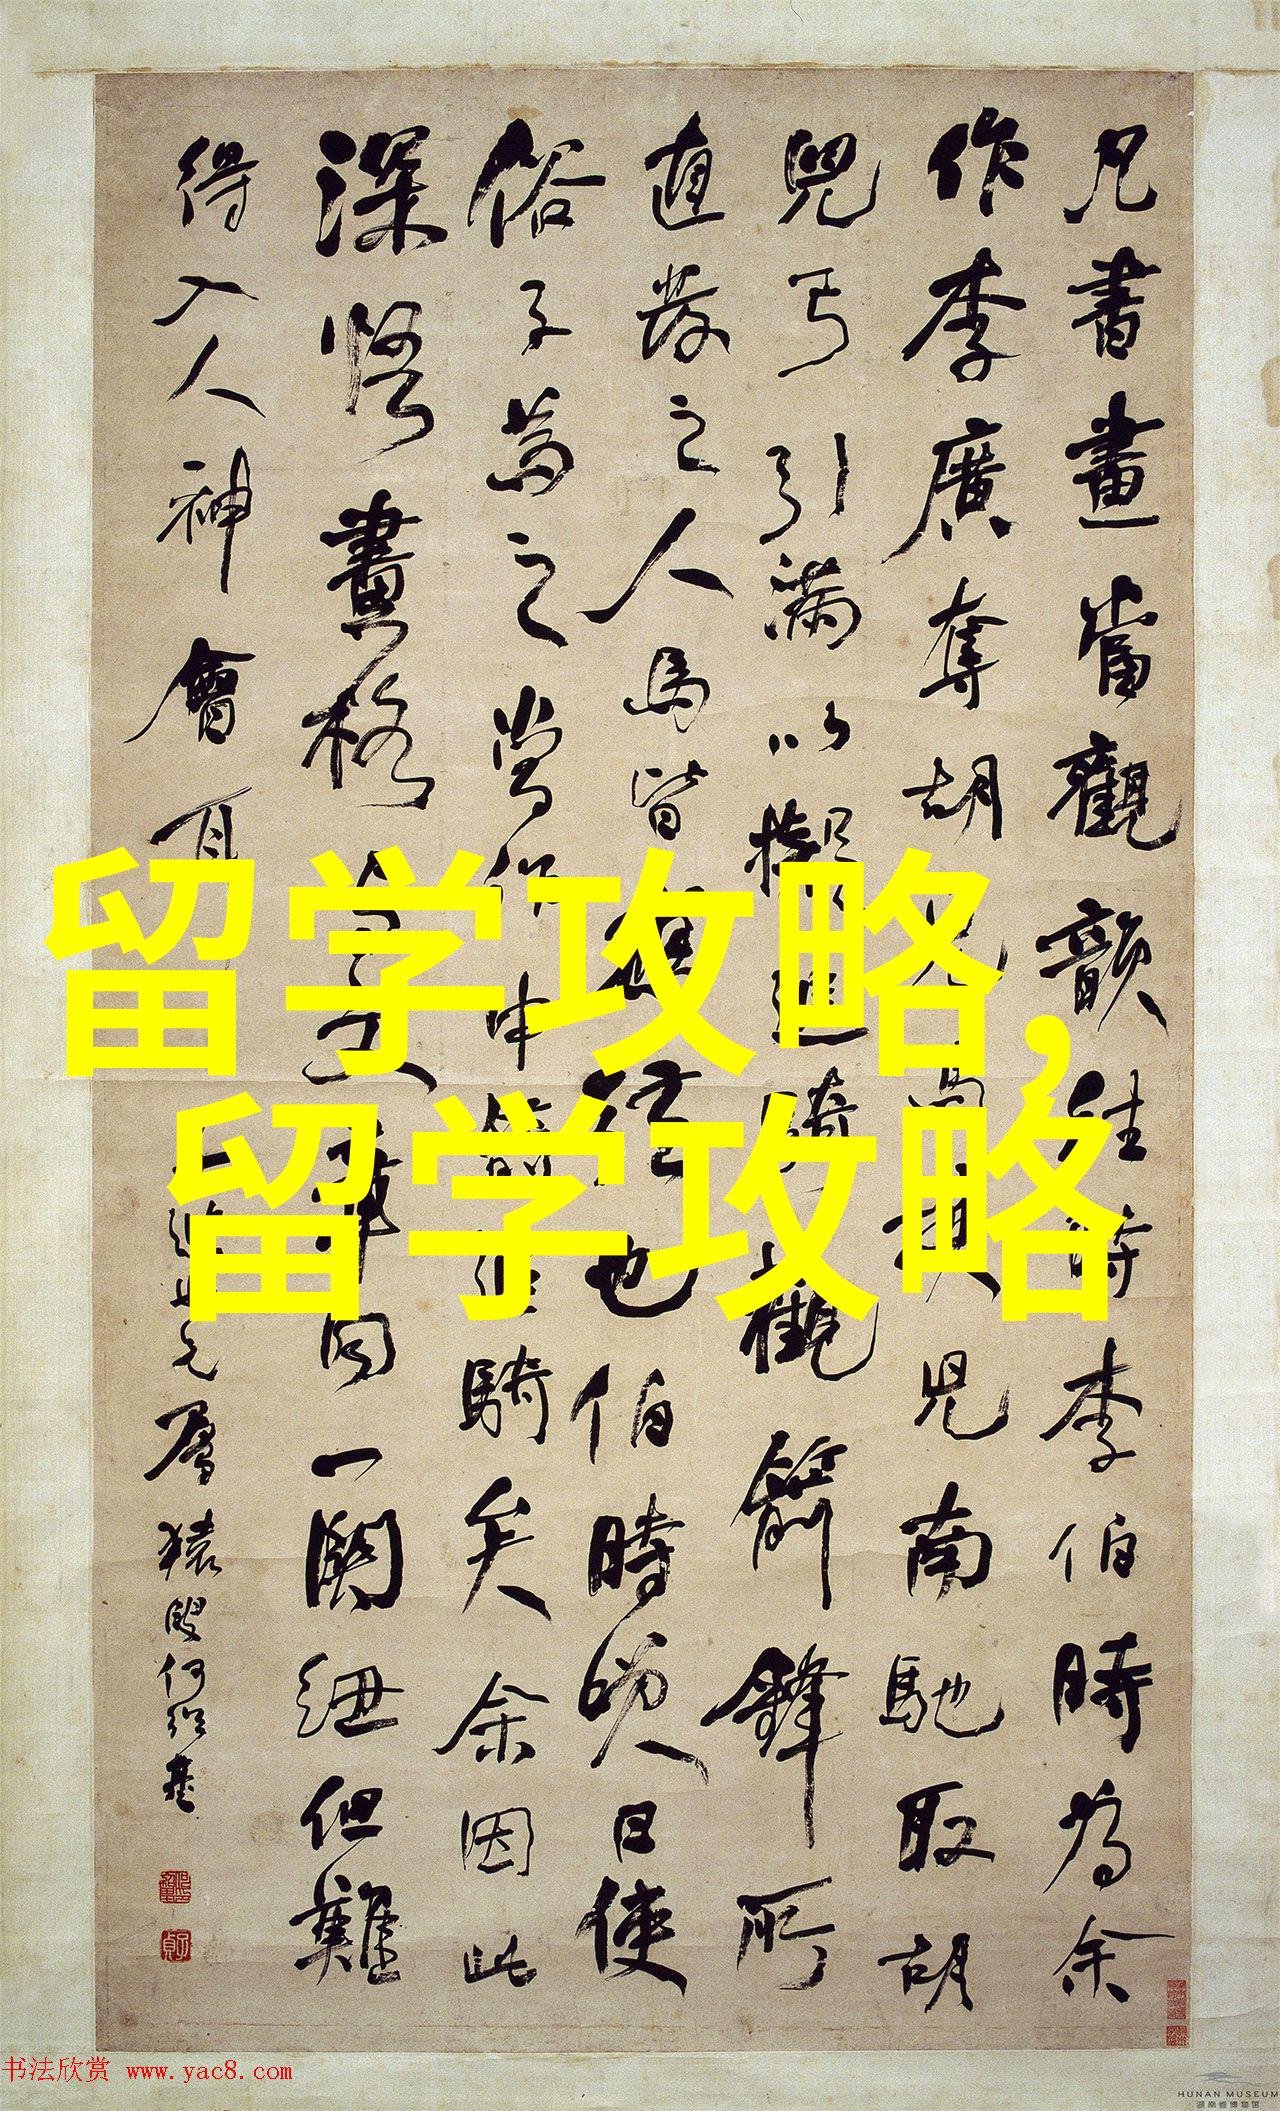 凡書畫當觀韻往時李伯時為余
作李廣奪胡兒馬挾兒南馳取胡
兒弓引滿以擬追騎觀箭鋒所
直發之人馬皆應弦也伯時笑曰使
俗子為之當作中箭追騎矣余因此
深悟畫格與文章同一關紐但難
得入人神會耳
猿叟何紹基
留学攻略,
留学攻略
书法欣赏 www.yac8.com
HUNAN MUSEUM
湖南省博物馆